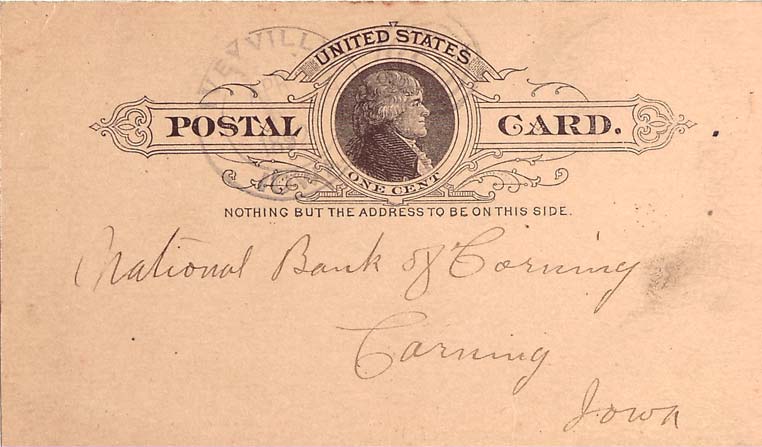 UNITED STATES
POSTAL CARD.
ONE CENT
NOTHING BUT THE ADDRESS TO BE ON THIS SIDE.
National Bank of Corning
Corning
Iowa